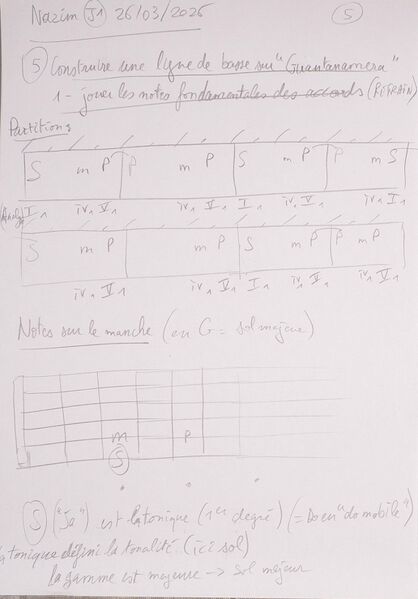 Nazim J1 26/03/2026
5
5 Construire une ligne de basse sur "Guantanamera"
1 - jouer les notes fondamentales des accords (REFRAIN)
Partition:
S m P P m P S m P P m S
I1 iv1 V1 iv1 V1 I1 iv1 V1 iv1 I1
S m P m P S m P P m P
iv1 V1 iv1 V1 I1 iv1 V1 iv1 V1
Notes sur le manche (en G = sol majeur)
m P
S
S ("Sa") est la tonique (1er degré) (= Do en "do mobile")
la tonique défini la tonalité. (ici sol)
la gamme est majeure → sol majeur